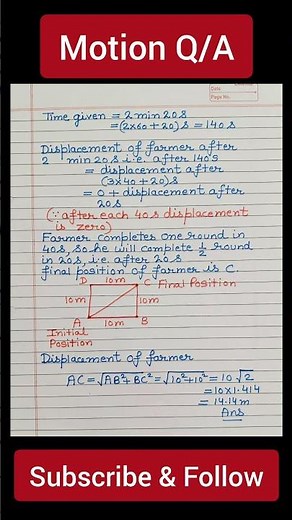 Motion Q/A
Date
Page No.
Time given = 2 min 20s
= (2x60+20)s = 140s
Displacement of farmer after
2 min 20s i.e. after 140s
= displacement after
(3x40+20)s
= 0 + displacement after
20s
(∵ after each 40s displacement
is zero)
Farmer completes one round in
40s, so he will complete 1/2 round
in 20s, i.e. after 20s
final position of farmer is C.
D 10m C Final Position
10m 10m
A 10m B
Initial
Position
Displacement of farmer
AC = √AB²+BC² = √10²+10² = 10√2
= 10x1.414
= 14.14m
Ans
Subscribe & Follow